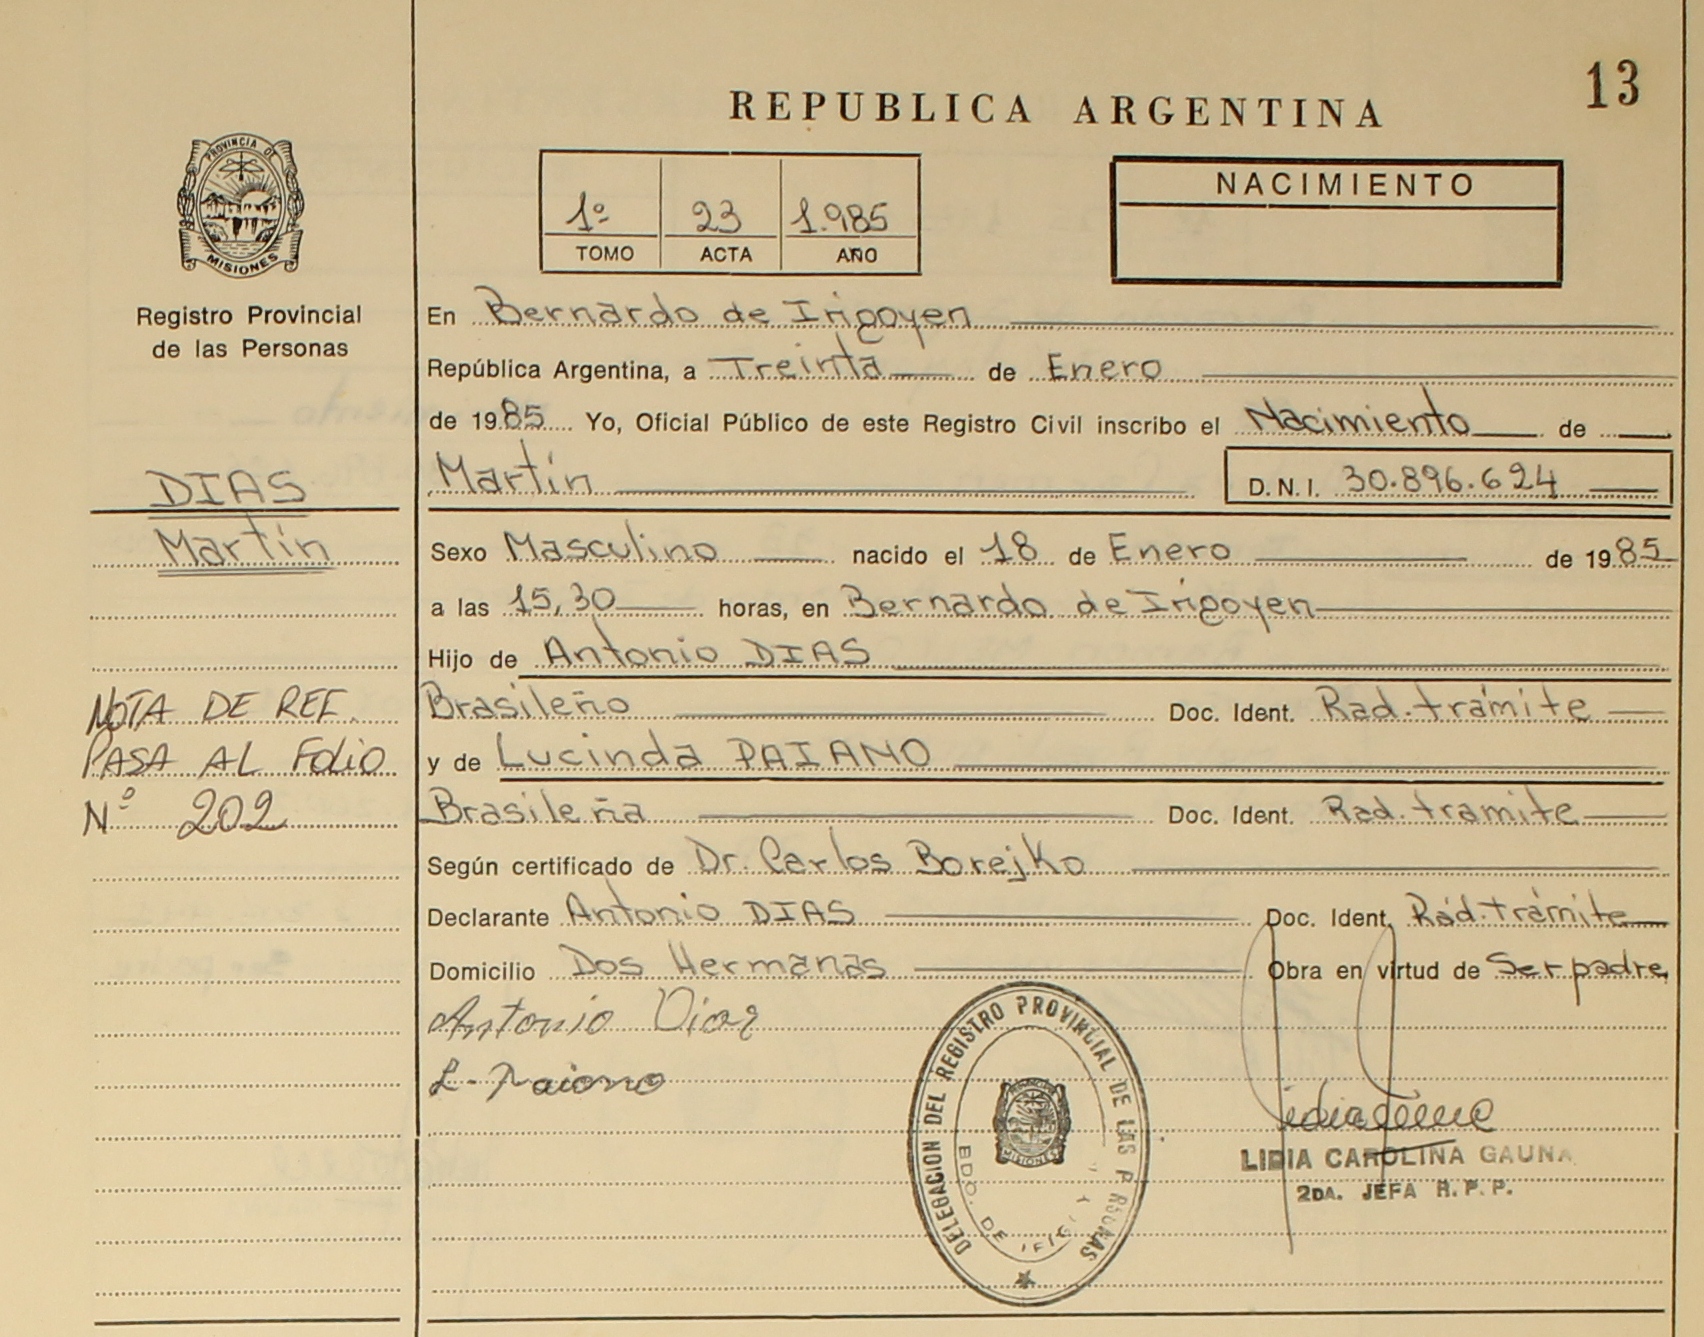 13
REPUBLICA ARGENTINA
PROVINCIA DE
MISIONES
Registro Provincial
de las Personas
1º 23 1.985
TOMO ACTA AÑO
NACIMIENTO
En Bernardo de Irigoyen
República Argentina, a Treinta de Enero
de 1985 Yo, Oficial Público de este Registro Civil inscribo el Nacimiento de
Martín D.N.I. 30.896.624
DIAS
Martín
Sexo Masculino nacido el 18 de Enero de 1985
a las 15,30 horas, en Bernardo de Irigoyen
Hijo de Antonio DIAS
Brasileño Doc. Ident. Rad. trámite
y de Lucinda PAIANO
Brasileña Doc. Ident. Rad. tramite
NOTA DE REF.
PASA AL FOLIO
Nº 202
Según certificado de Dr. Carlos Borejko
Declarante Antonio DIAS Doc. Ident. Rad. trámite
Domicilio Dos Hermanas Obra en virtud de Ser padre
Antonio Dias
L. Paiano
DELEGACION DEL REGISTRO PROVINCIAL DE LAS P RSONAS
BDO. DE
MISIONES
LIDIA CAROLINA GAUNA
2DA. JEFA R.P.P.